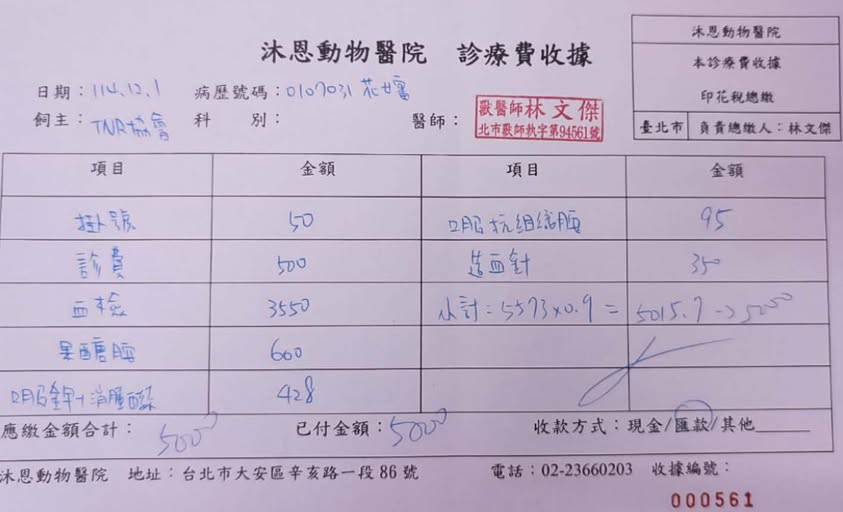 沐恩動物醫院 診療費收據
沐恩動物醫院
本診療費收據
印花稅總繳
臺北市 負責總繳人：林文傑
日期：114.12.1 病歷號碼：0107031 花
飼主：TNR協會 科 別： 醫師：
獸醫師林文傑
北市獸師執字第94561號
項目 金額 項目 金額
掛號 50 口服抗組織胺 95
診費 500 造血針 350
血檢 3550 小計：5573x0.9= 5015.7→5000
果醣胺 600
口服 428
應繳金額合計：5000 已付金額：5000 收款方式：現金/匯款/其他
沐恩動物醫院 地址：台北市大安區辛亥路一段86號 電話：02-23660203 收據編號：
000561